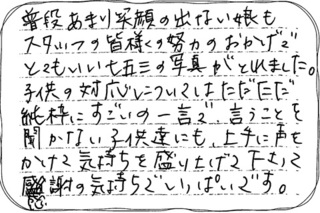 普段あまり笑顔の出ない娘も
スタッフの皆様くの努力のおかげで
とてもいい七五三の写真がとれました。
子供の対応についてはただただ
純粋にすごいの一言で、言うことを
聞かない子供達にも、上手に声を
かけて気持ちを盛り上げて下さって
感謝の気持ちでいっぱいです。